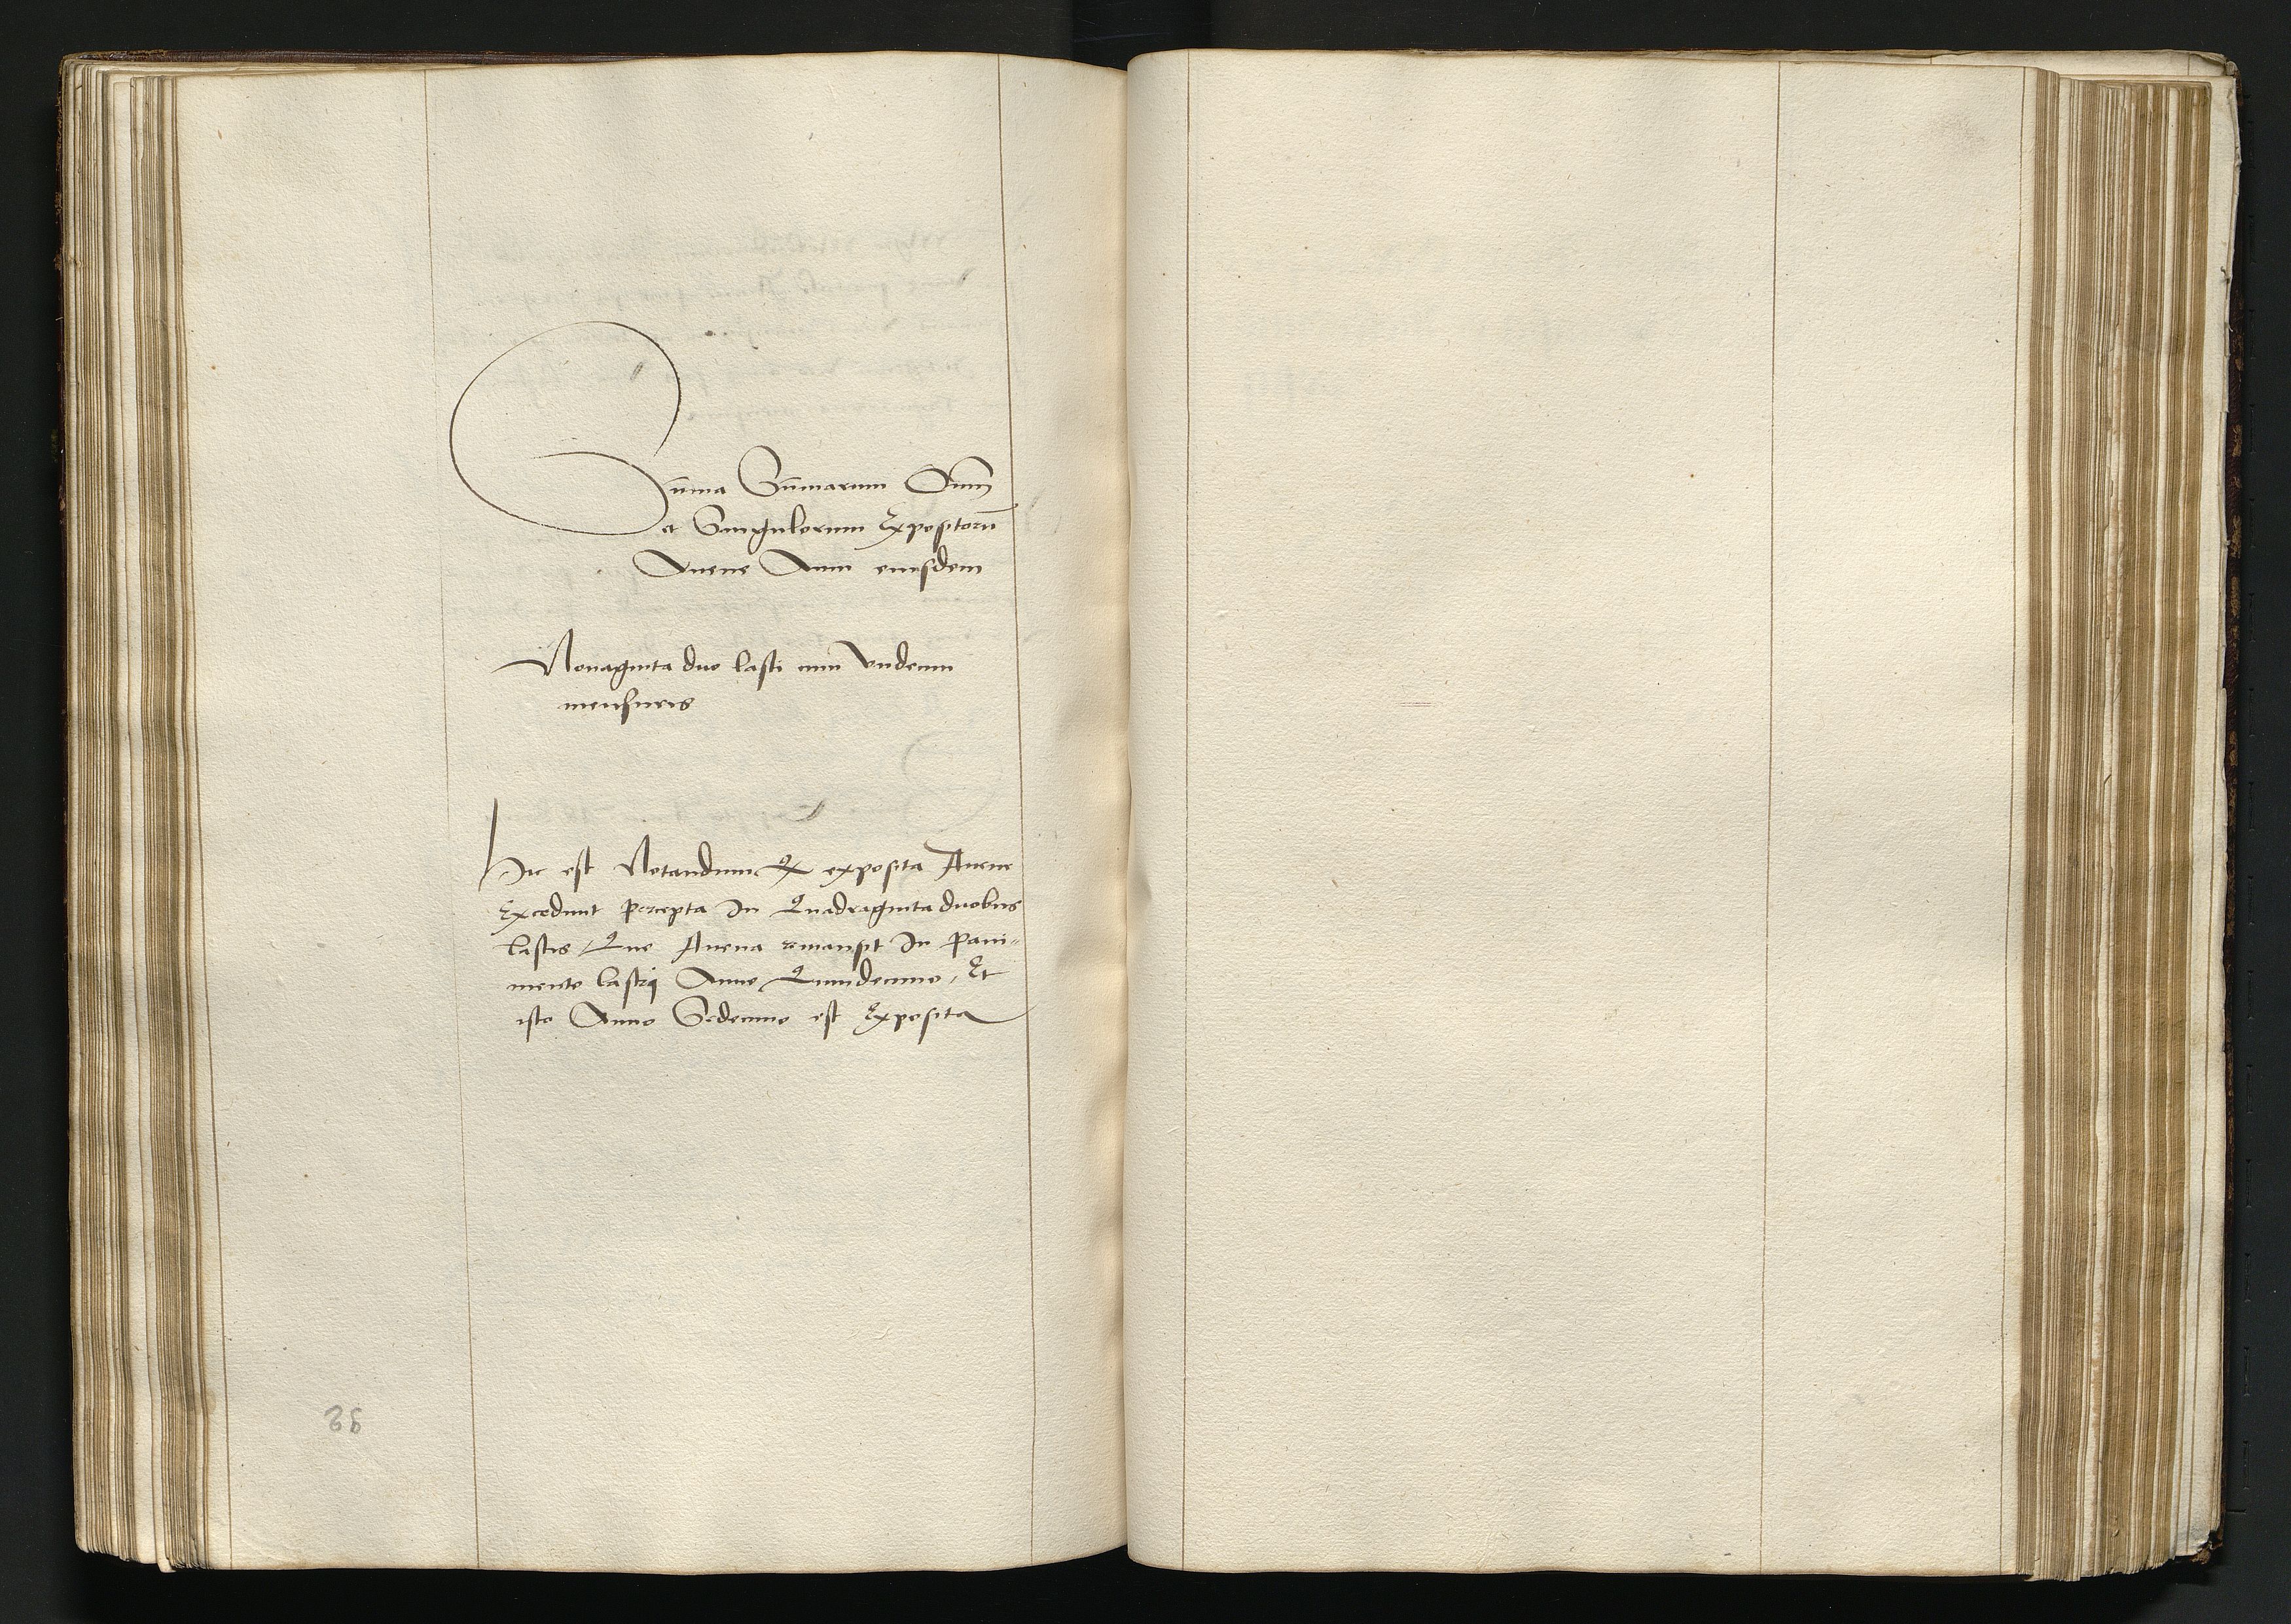 Sum̄a Sum̄arum Om̄
et Singulorum Expositorū
Auene Anni eiusdem
Nonaginta duo lasti cum Vndecim
mensuris
Hic est Notandum Qꝫ exposita Auene
Excedunt percepta In Quadraginta duobus
lastis / Que Auena remansit In Paui-
mento Castri Anno Quindecimo, Et
isto Anno Sedecimo est Exposita
38